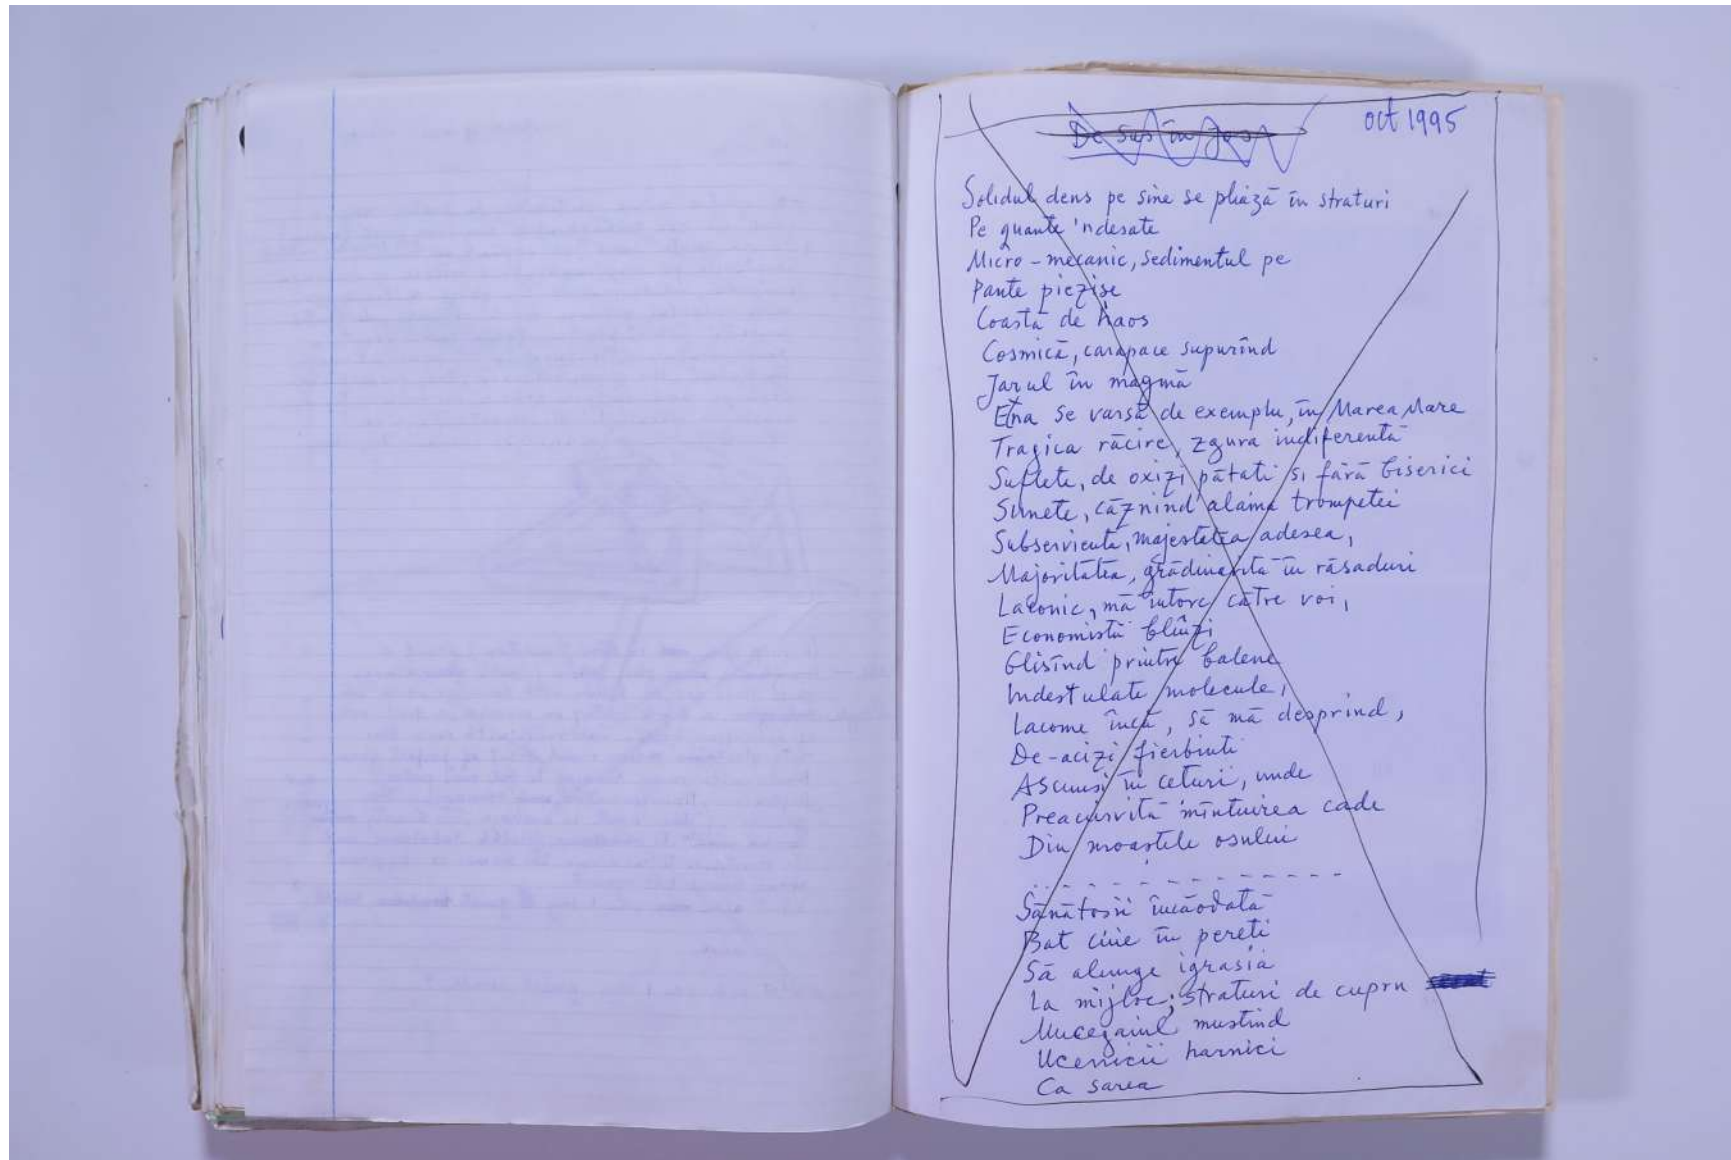 De sus în jos
oct 1995
Solidul dens pe sine se pliază în straturi
Pe quante 'ndesate
Micro-mecanic, sedimentul pe
Pante piezișe
Coastă de haos
Cosmică, carapace supurînd
Jarul în magmă
Etna se varsă de exemplu, în Marea Mare
Tragica răcire, zgura indiferentă
Suflete, de oxizi pătati si fără biserici
Sunete, căznind alama trompetei
Subserviente, majestatea adesea,
Majoritatea, grădinărită în răsaduri
Laconic, mă întorc către voi,
Economisti blînzi
Glisînd printre balene
Indestulate molecule,
Lacome încă, să mă desprind,
De-acizi fierbinti
Ascunsi în ceturi, unde
Preacurvită mîntuirea cade
Din moastele osului
Sănătosii încăodată
Bat cuie în pereti
Să alunge igrasia
La mijloc; straturi de cupru
Mucegaiul mustind
Ucenicii harnici
Ca sarea